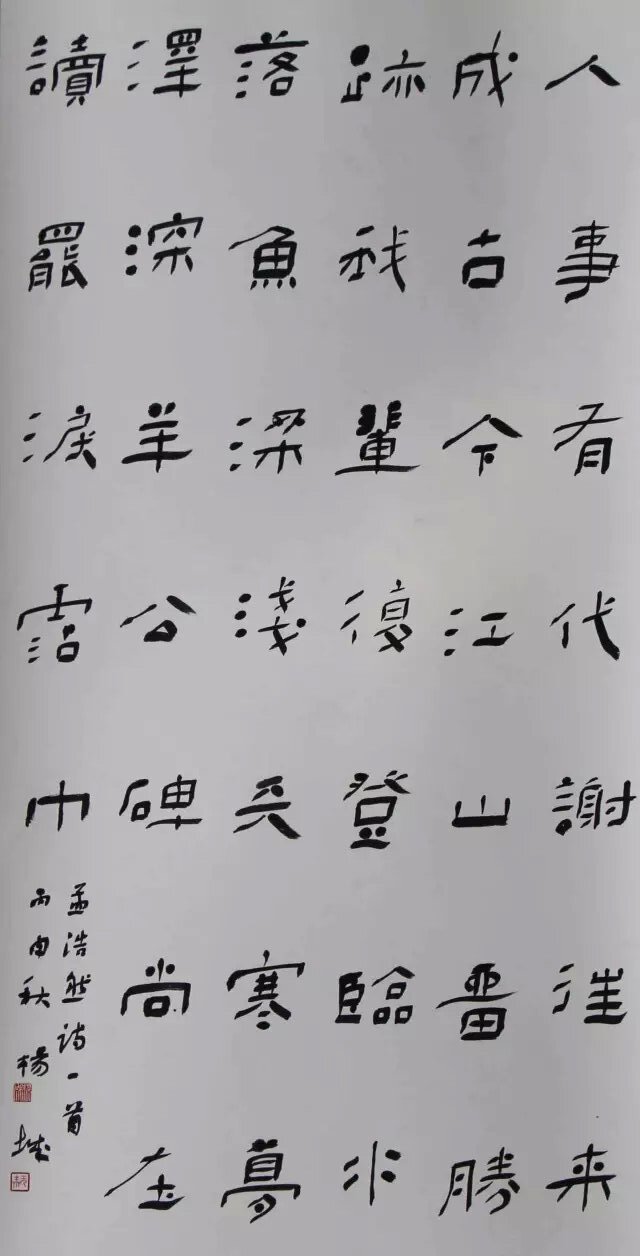 人事有代謝往来
成古今江山畱勝
跡我輩復登臨水
落魚深淺天寒夢
澤深羊公碑尚在
讀罷淚霑巾
孟浩然诗一首
丙申秋楊城